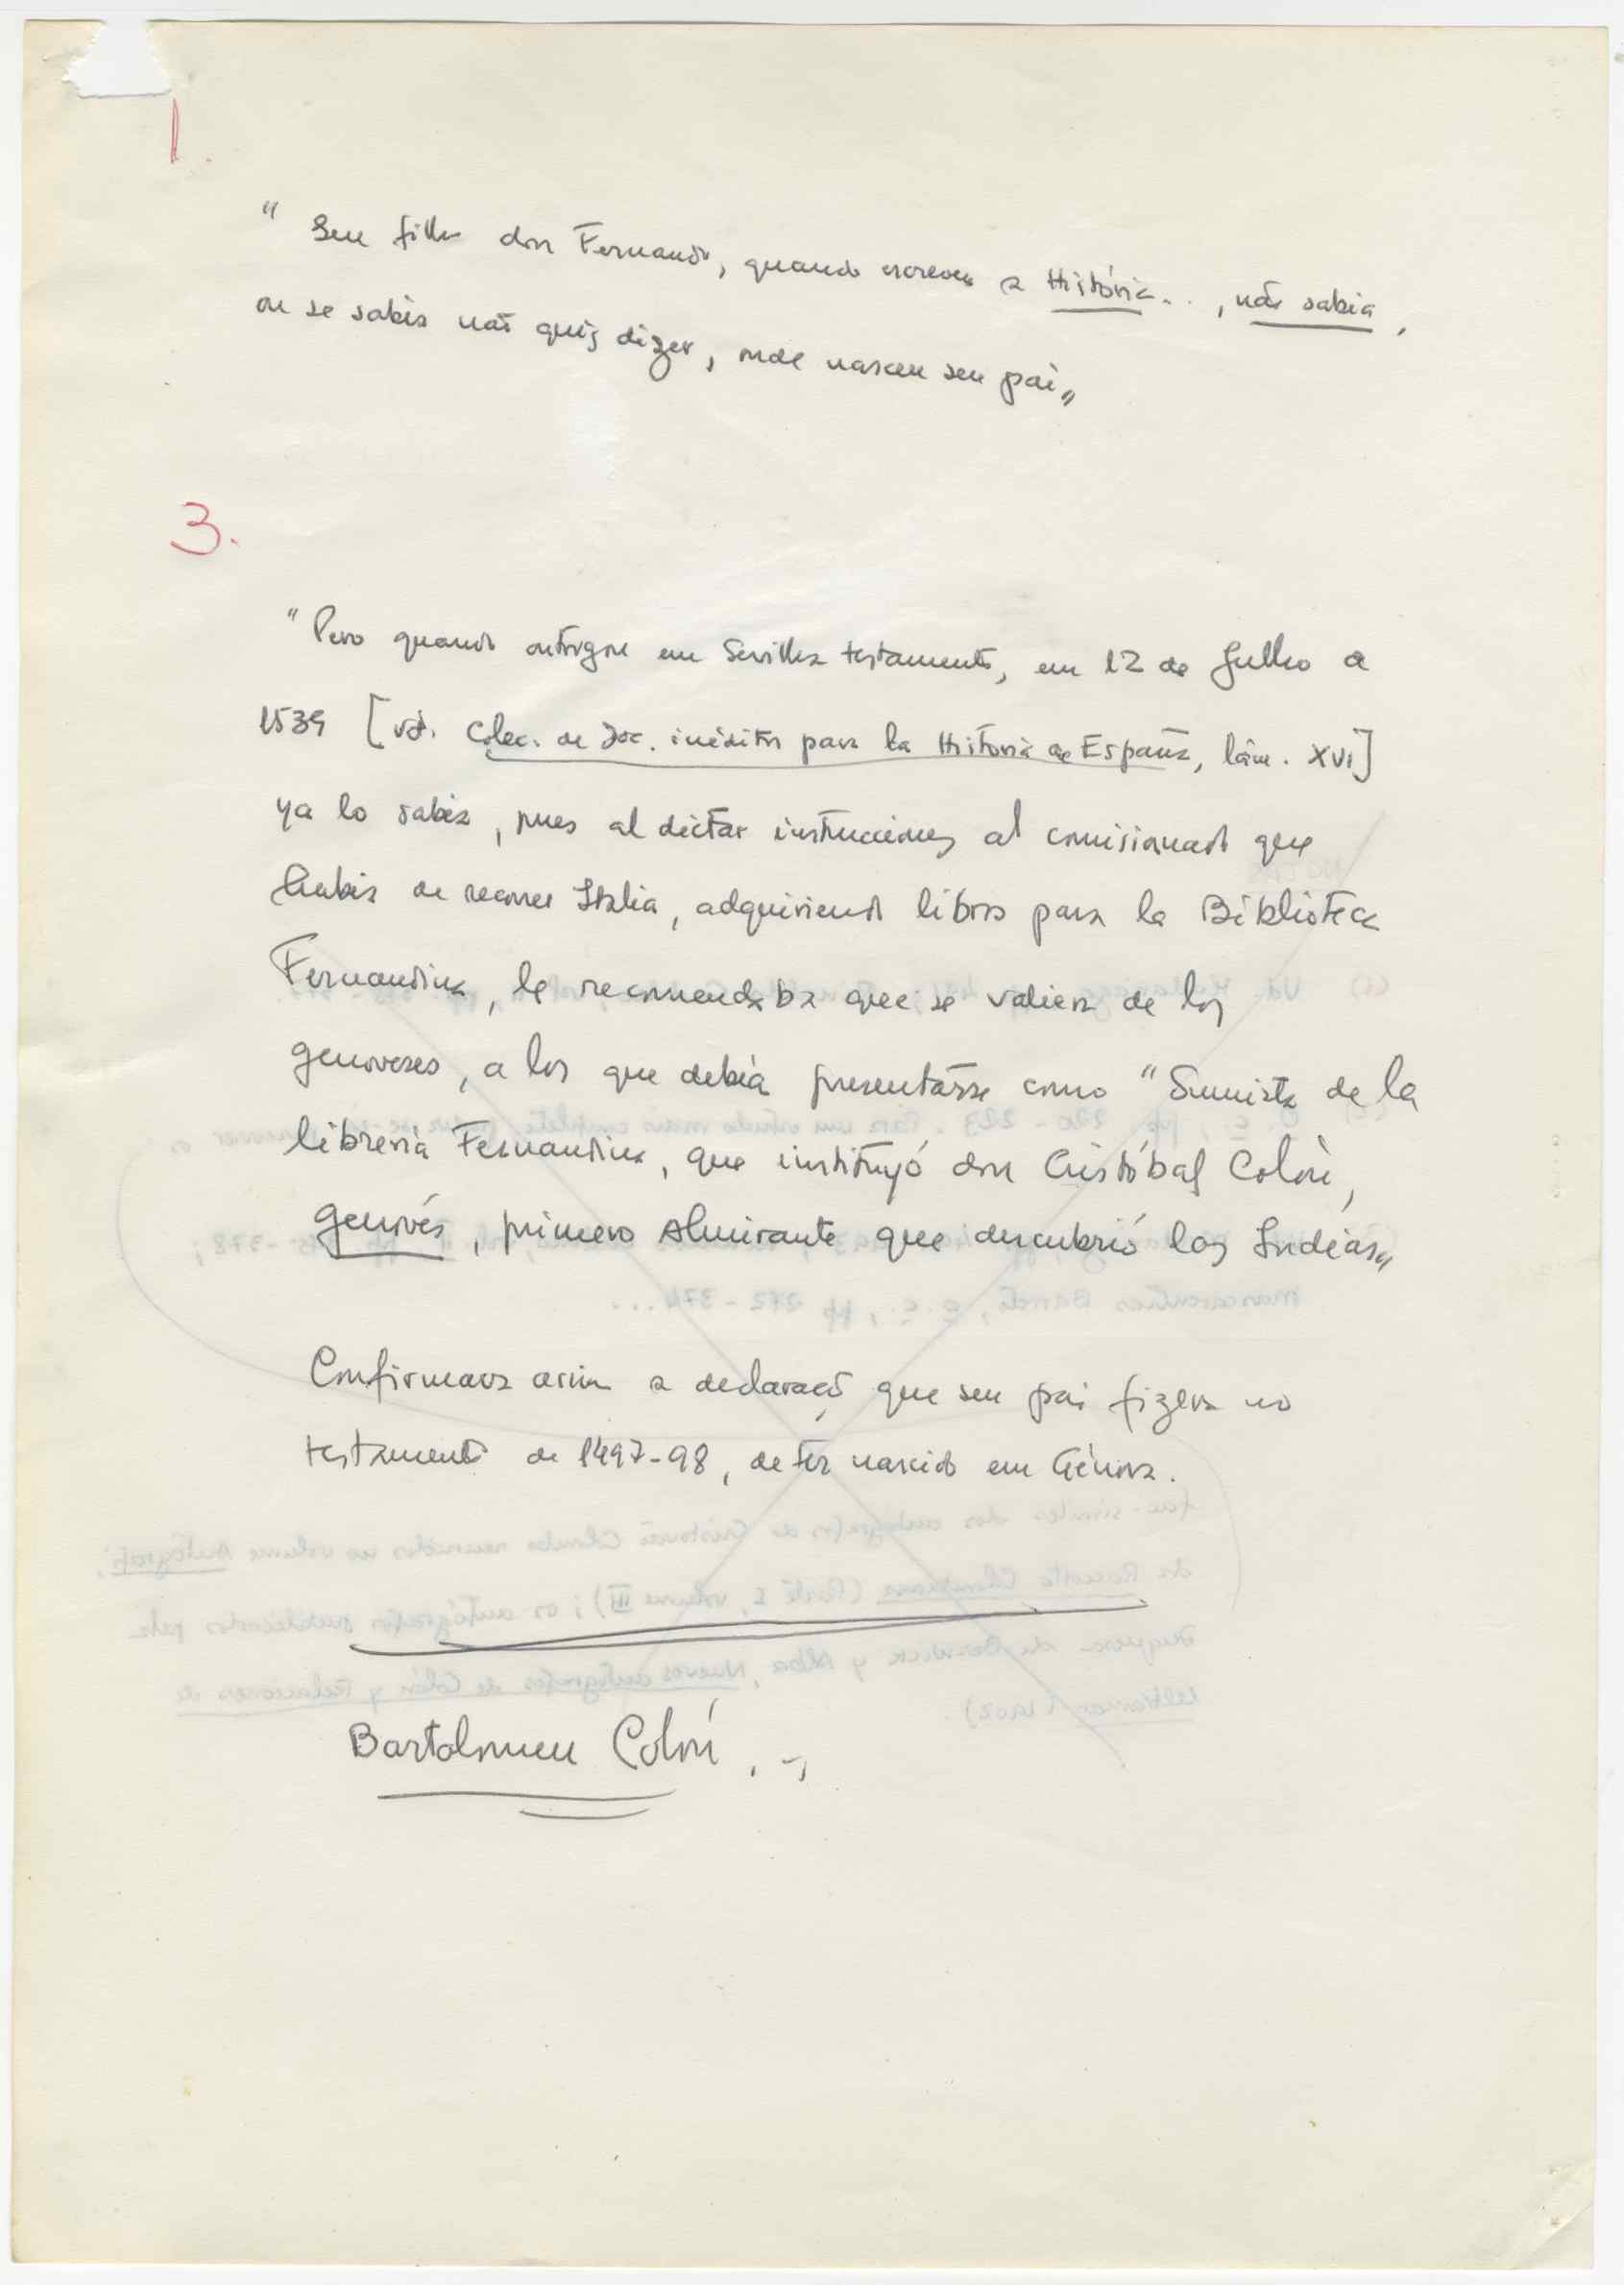 1.
" Seu filho don Fernando, quando escreveu a História.., não sabia,
ou se sabia não quiz dizer, onde nasceu seu pai"
3.
"Pero quando outorgou em Sevilha testamento, em 12 de Julho de
1539 [vd. Colec. de Doc. inéditos para la Historia de España, lám. XVI]
ya lo sabia, pues al dictar instrucciones al comisionado que
había de recorrer Italia, adquiriendo libros para la Biblioteca
Fernandina, le recomendaba que se valiera de los
genoveses, a los que debía presentarse como "Sumista de la
librería Fernandina, que instituyó don Cristóbal Colón,
genovés, primero Almirante que descubrió las Indias"
Confirmava assim a declaração que seu pai fizera no
testamento de 1497-98, de ter nascido em Génova.
Bartolomeu Colón